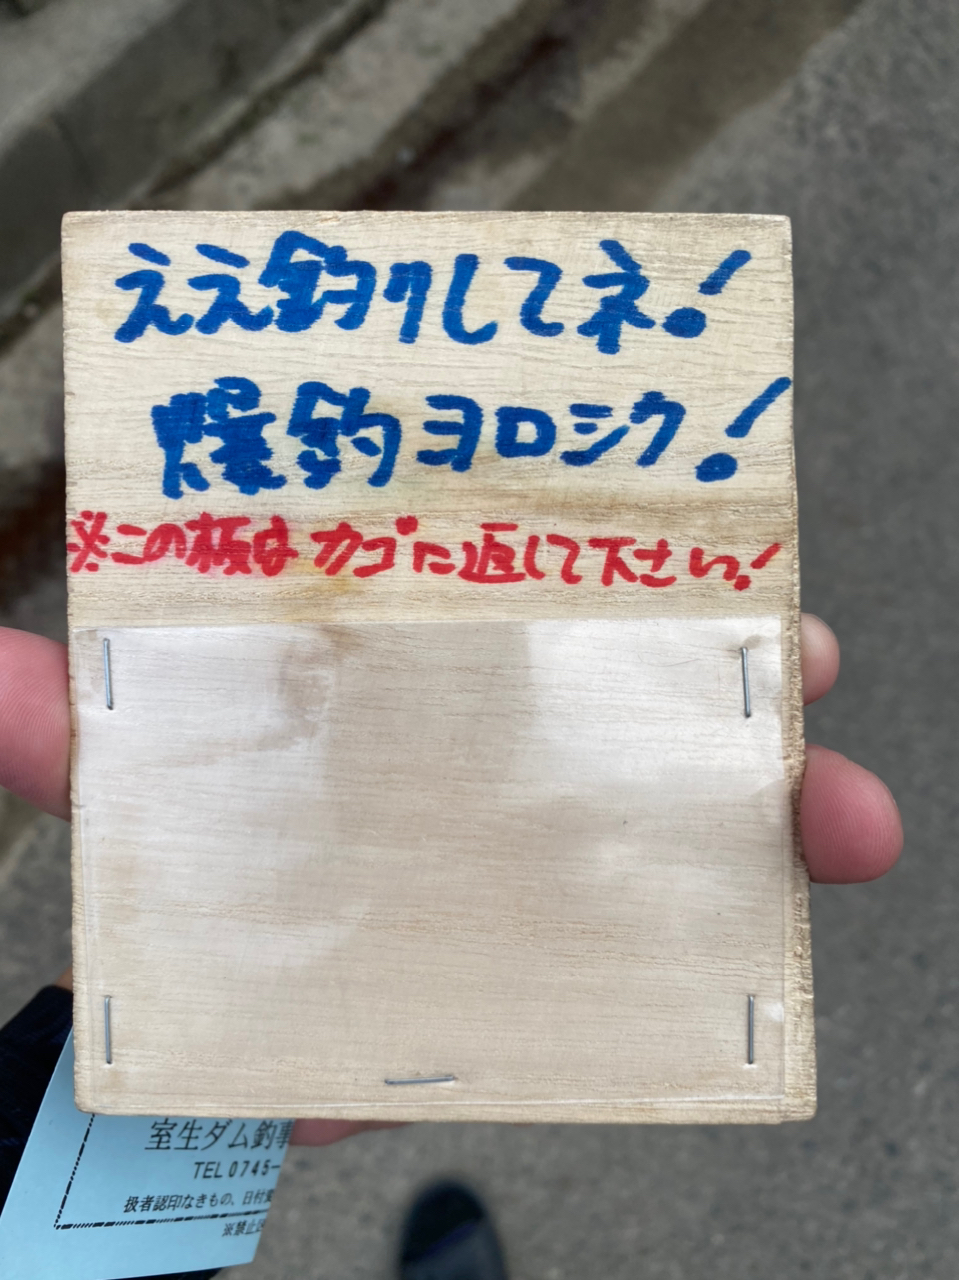 ええ釣りしてネ!
爆釣ヨロシク!
※この板はカゴに返して下さい!
室生ダム釣事
TEL 0745-
扱者認印なきもの、日付変
※禁止区